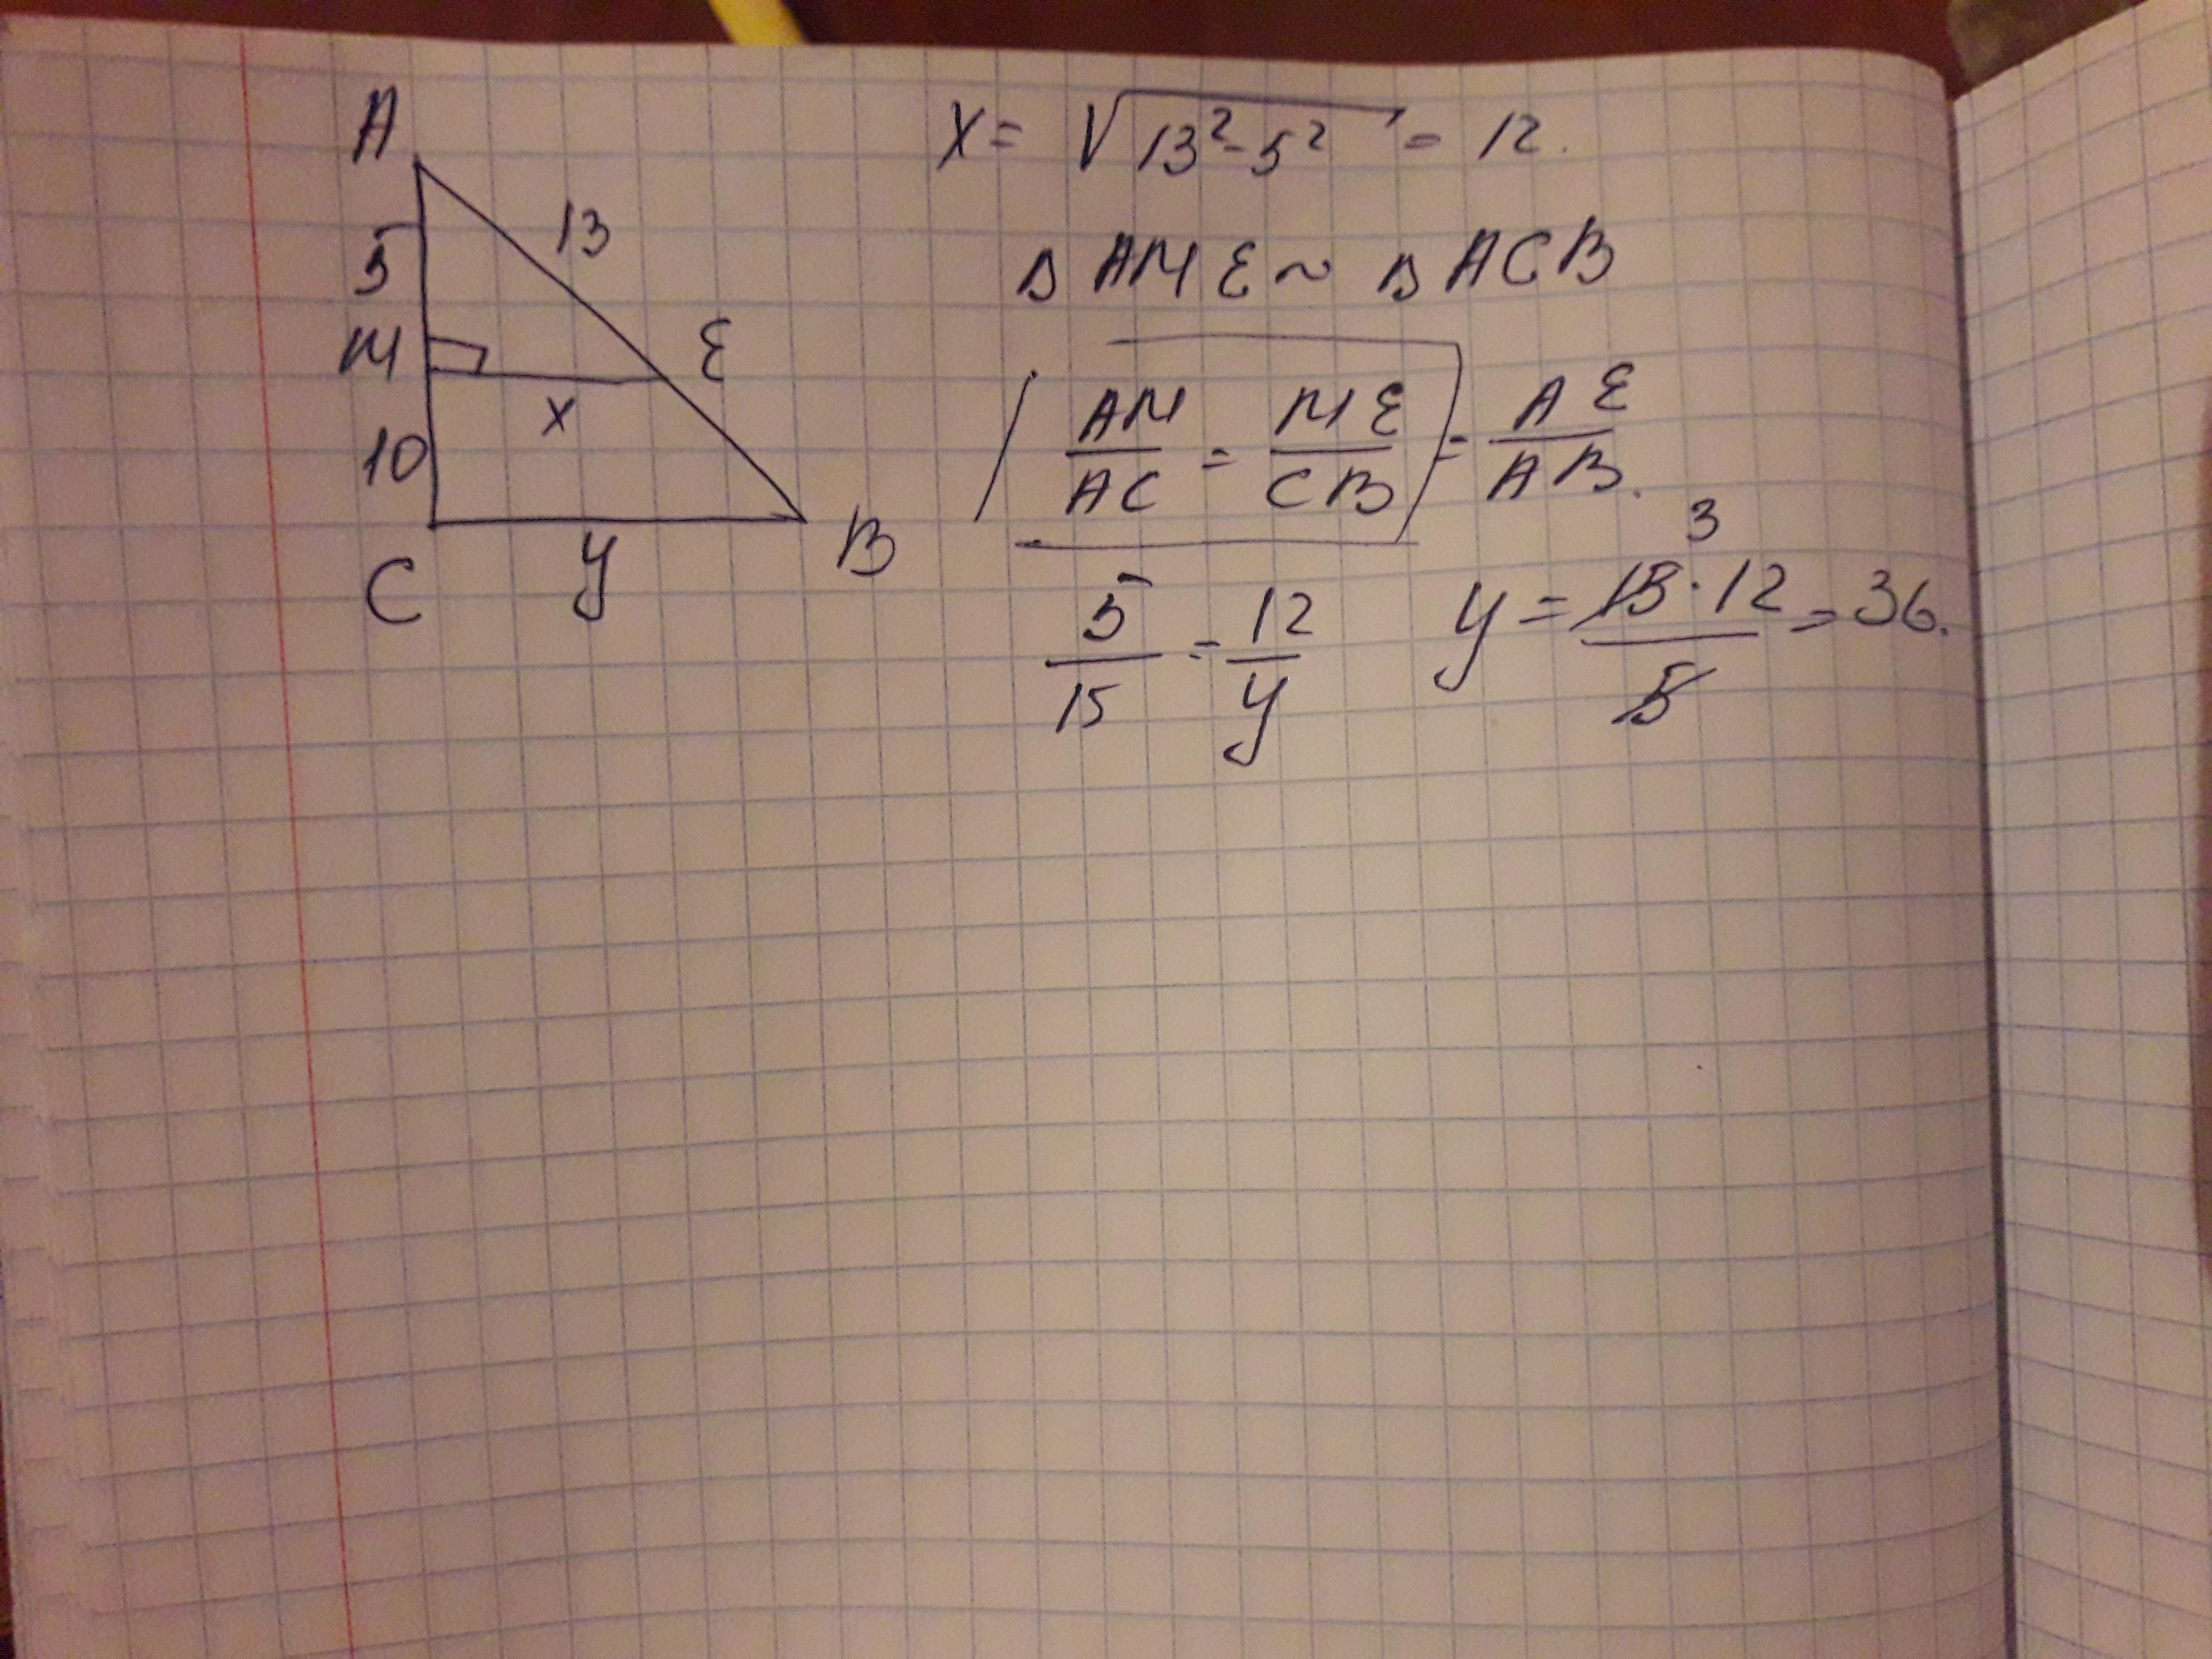 A
5
13
M
E
x
10
C
y
B
x = √13² - 5² = 12.
Δ AME ~ Δ ACB
AM/AC = ME/CB = AE/AB.
5/15 = 12/y
3
y = 15 · 12/5 = 36.